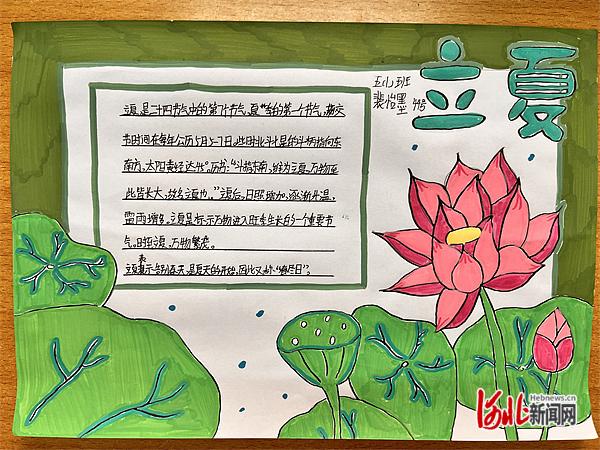 立夏
五(1)班
裴怡墨
立夏,是二十四节气中的第7个节气,夏季的第一个节气,交
节时间在每年公历5月5-7日。此时北斗七星的斗柄指向东
南方,太阳黄经达45°。历书:“斗指东南,维为立夏,万物至
此皆长大,故名立夏也。”立夏后,日照增加,逐渐升温,
雷雨增多。立夏是标示万物进入旺季生长的一个重要节
气。时至立夏,万物繁茂。
立夏表示告别春天,是夏天的开始,因此又称“春尽日”。
河北新闻网
Hebnews.cn